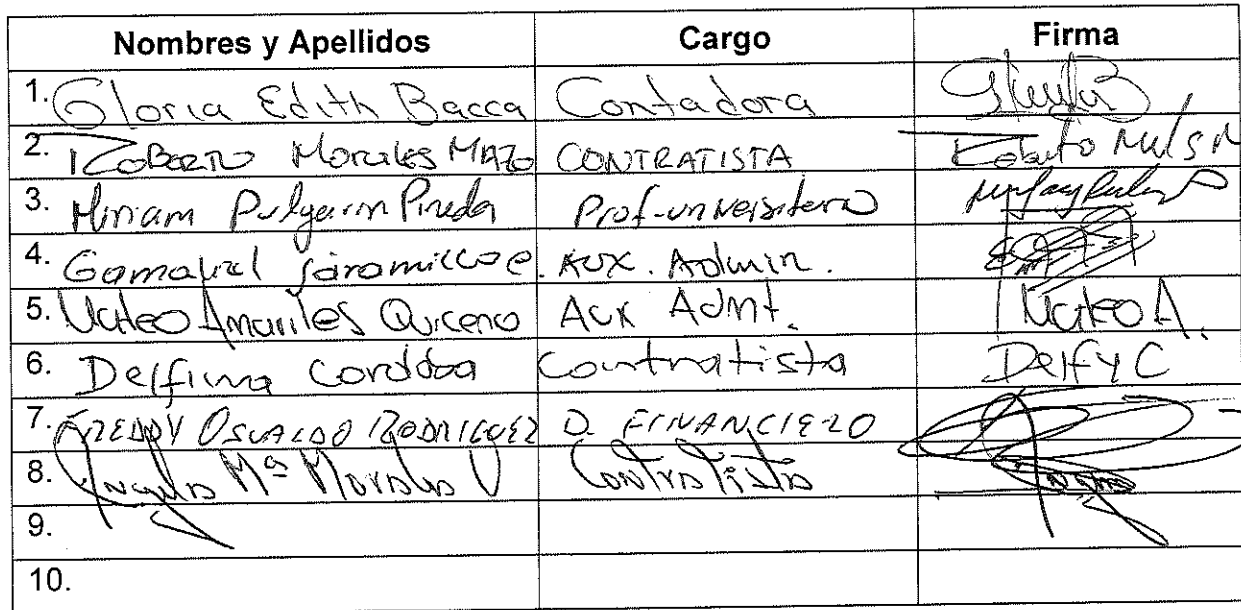 Nombres y Apellidos Cargo Firma
1. Gloria Edith Bacca Contadora
2. Roberto Morales Mazo CONTRATISTA Roberto
3. Miriam Pulgarin Pineda Prof-universitario
4. Gamaliel Jaramillo e. Aux. Admin.
5. Mateo Amariles Quiceno Aux Admt. Mateo A.
6. Delfina Cordoba Contratista Delfy C
7. FREDDY OSVALDO RODRIGUEZ D. FINANCIERO
8. Angela Mª Morales V Contratista
9.
10.